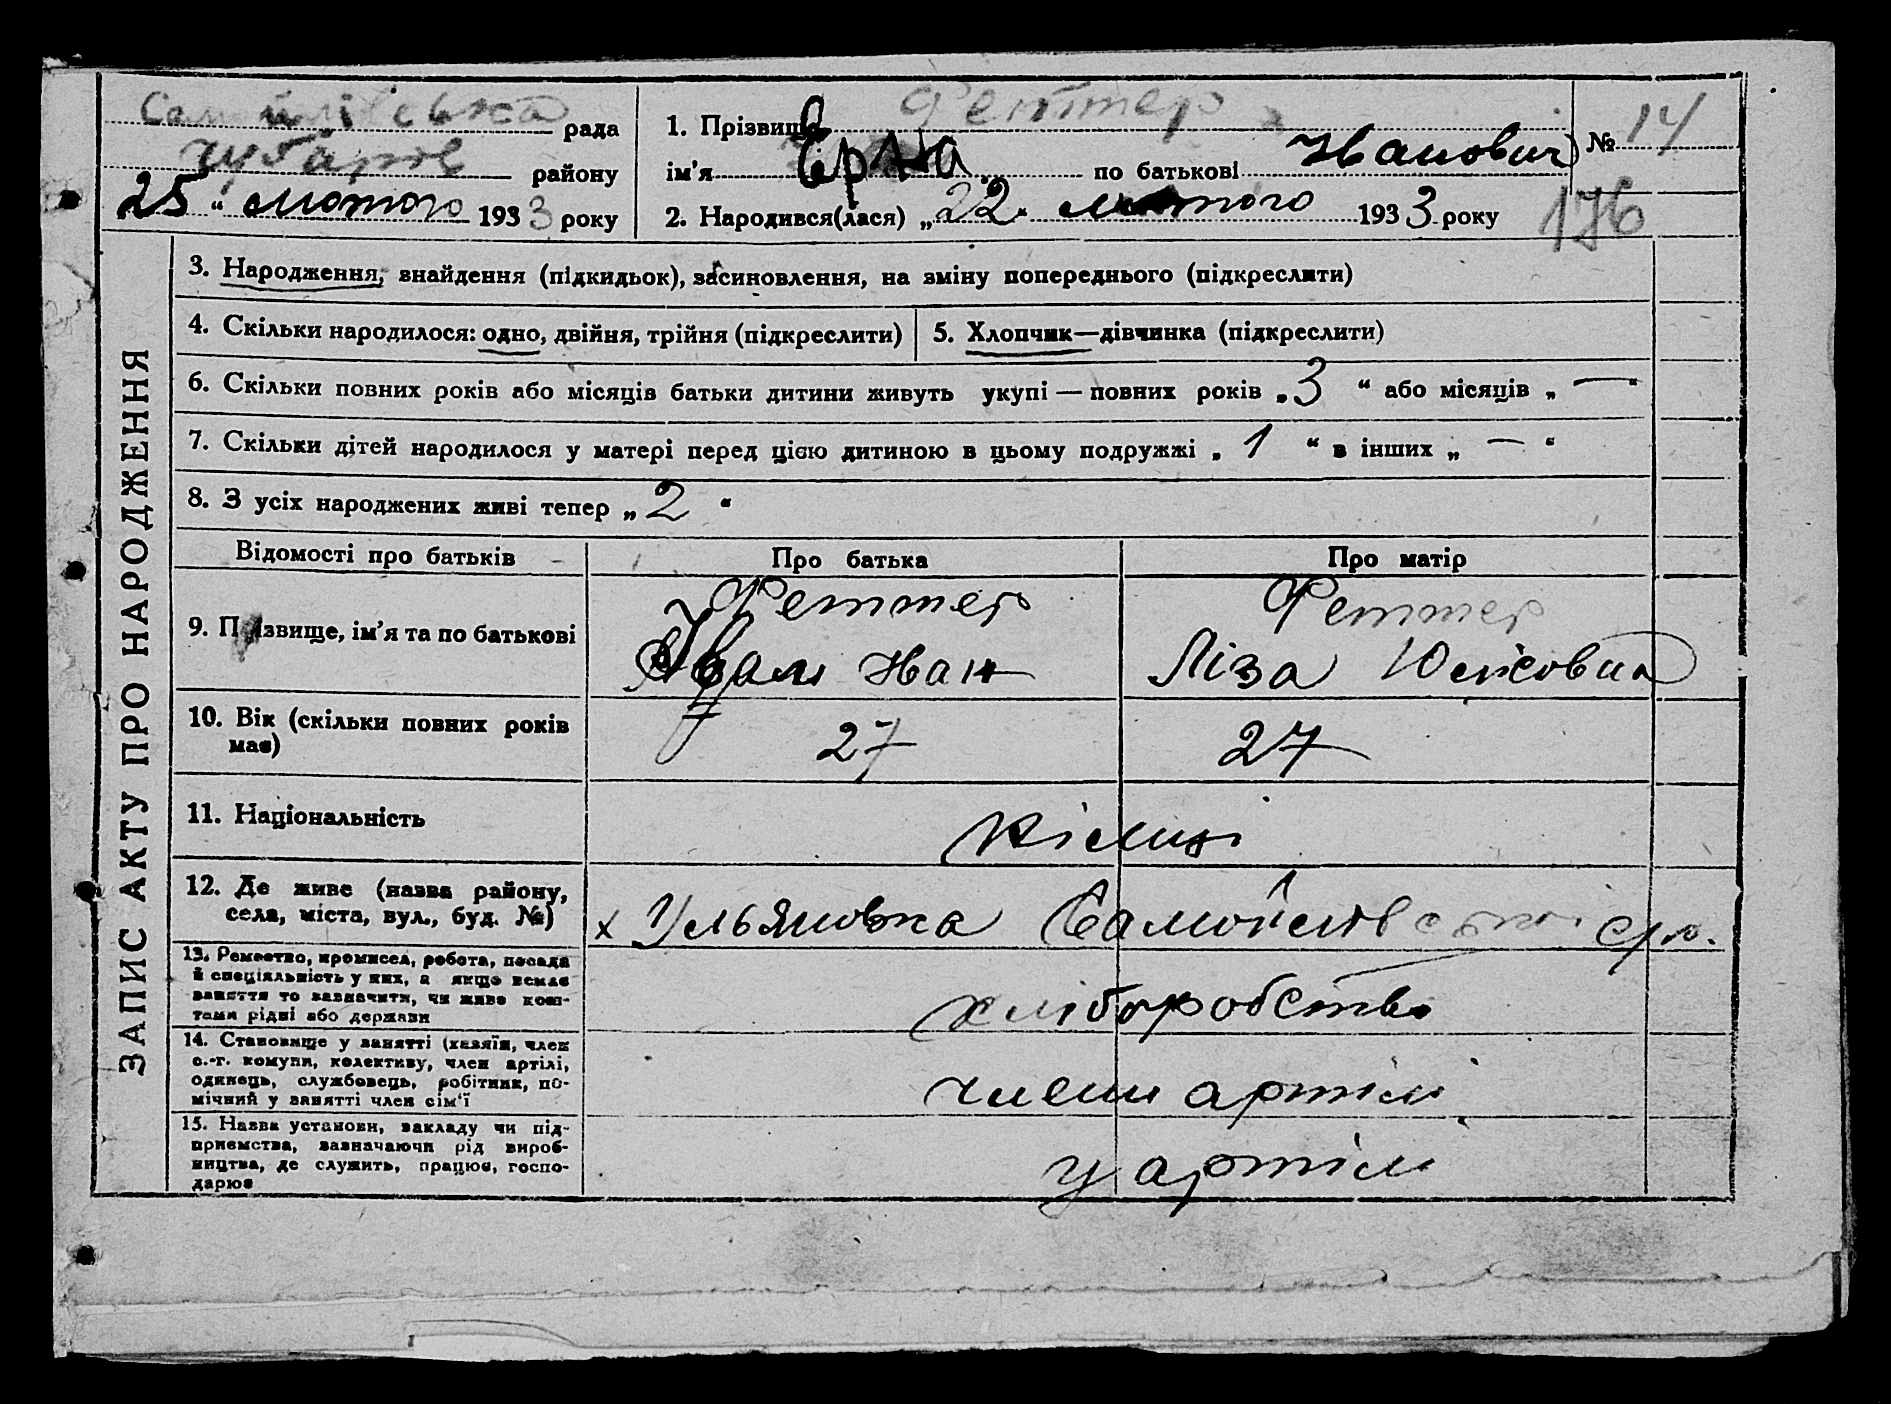 Самійлівська рада
Чубарів району
25 “ лютого 1933 року
1. Прізвище Феттер
ім’я Ерна по батькові Іванович
2. Народився(лася) „22“ лютого 1933 року
№ 14
176
ЗАПИС АКТУ ПРО НАРОДЖЕННЯ
3. Народження, знайдення (підкидьок), засиновлення, на зміну попереднього (підкреслити)
4. Скільки народилося: одно, двійня, трійня (підкреслити)
5. Хлопчик—дівчинка (підкреслити)
6. Скільки повних років або місяців батьки дитини живуть укупі — повних років „3“ або місяців „—“
7. Скільки дітей народилося у матері перед цією дитиною в цьому подружжі „1“ в інших „—“
8. З усіх народжених живі тепер „2“
Відомості про батьків Про батька Про матір
9. Прізвище, ім’я та по батькові
Феттер
Іван Іван
Феттер
Ліза
10. Вік (скільки повних років
має)
27 27
11. Національність
німці
12. Де живе (назва району,
села, міста, вул., буд. №)
х Ульяновка Самойлівської с/р.
13. Ремество, промисел, робота, посада
й спеціяльність у них, а якщо немає
заняття то зазначити, чи живе кош-
тами рідні або держави
хліборобство
14. Становище у занятті (хазяїн, член
с.-г. комуни, колективу, член артілі,
одинець, службовець, робітник, по-
мічний у занятті член сім’ї
члени артілі
15. Назва установи, закладу чи під-
приємства, зазначаючи рід вироб-
ництва, де служить, працює, госпо-
дарює
у артілі